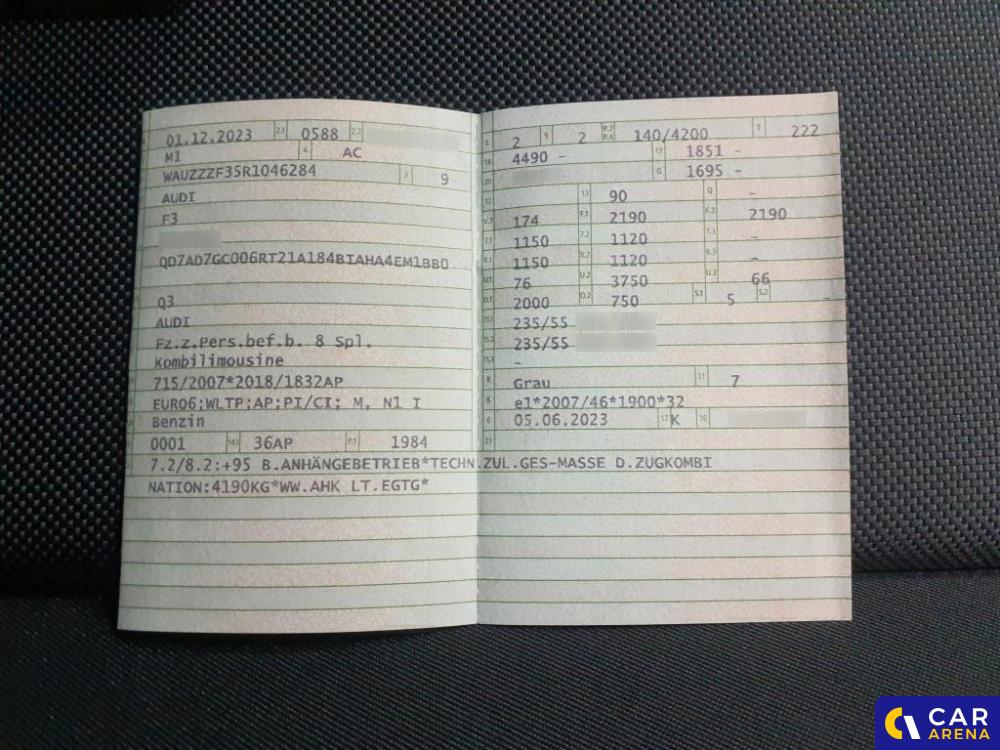 01.12.2023 2.1 0588 2.2
M1 4 AC
WAUZZZF35R1046284 3 9
AUDI
F3
QD7AD7GC006RT21A184BIAHA4EM1BB0
Q3
AUDI
Fz.z.Pers.bef.b. 8 Spl.
Kombilimousine
715/2007*2018/1832AP
EURO6;WLTP;AP;PI/CI; M, N1 I
Benzin
0001 14.1 36AP P.1 1984
2 9 2 P.2 P.4 140/4200 T 222
4490 - 19 1851 -
G 1695 -
13 90 Q -
V.7 174 F.1 2190 F.2 2190
7.1 1150 7.2 1120 7.3 -
8.1 1150 8.2 1120 8.3 -
U.1 76 U.2 3750 U.3 66
O.1 2000 O.2 750 S.1 5 S.2 -
15.1 235/55
15.2 235/55
15.3 -
R Grau 11 7
K e1*2007/46*1900*32
6 05.06.2023 17 K 16
21
7.2/8.2:+95 B.ANHÄNGEBETRIEB*TECHN.ZUL.GES-MASSE D.ZUGKOMBI
NATION:4190KG*WW.AHK LT.EGTG*
CAR
ARENA